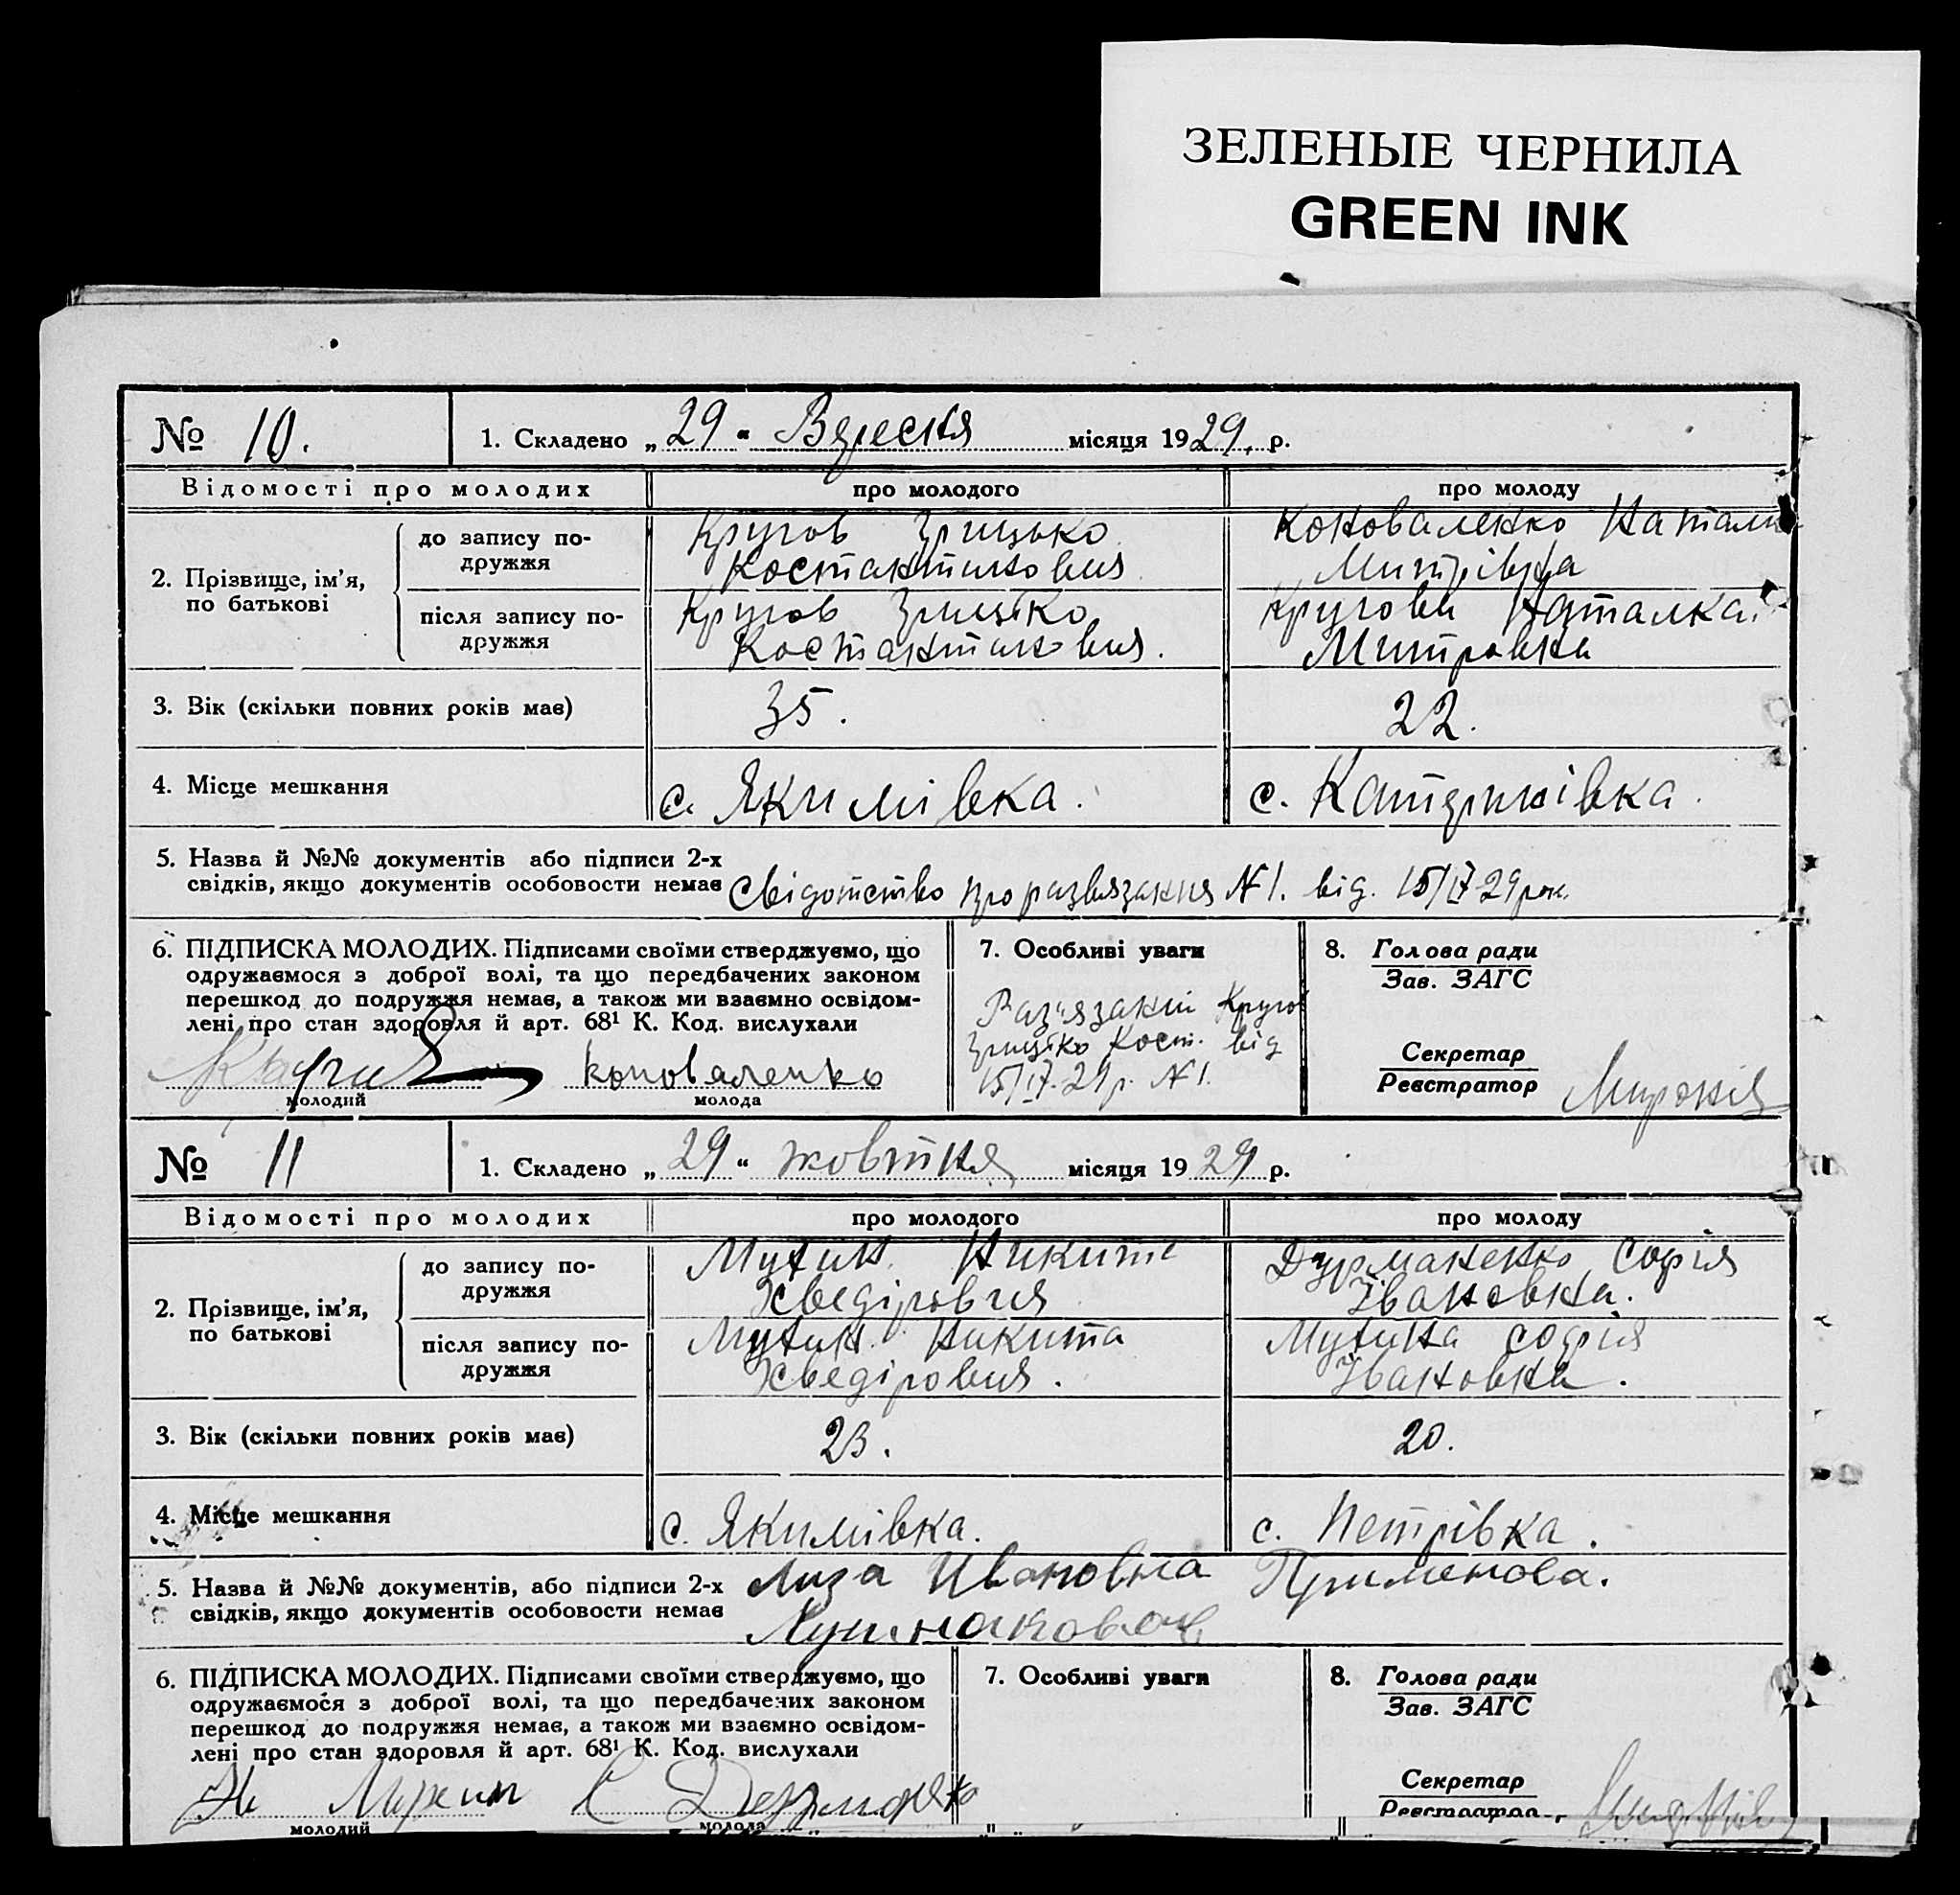 ЗЕЛЕНЫЕ ЧЕРНИЛА
GREEN INK
№ 10. 1. Складено „29“ Вересня місяця 1929. р.
Відомості про молодих про молодого про молоду
2. Прізвище, ім’я, по батькові
до запису подружжя
Кругов Грицько
Костантинович
Коноваленко Наталк
Митрівна
після запису подружжя
Кругов Грицько
Костантинович.
Кругова Наталка.
Митровна
3. Вік (скільки повних років має) 35. 22.
4. Місце мешкання с. Якимівка. с. Катеринівка.
5. Назва й №№ документів або підписи 2-х
свідків, якщо документів особовости немає Свідотство про развязання №1. від. 15/IV-29 рок.
6. ПІДПИСКА МОЛОДИХ. Підписами своїми стверджуємо, що
одружаємося з доброї волі, та що передбачених законом
перешкод до подружжя немає, а також ми взаємно освідом-
лені про стан здоровля й арт. 68¹ К. Код. вислухали
коноваленко
молодий молода
7. Особливі уваги
Раз'язаний Кругов
Грицько Кост. від
15/IV-29 р. №1.
8. Голова ради
Зав. ЗАГС
Секретар
Реєстратор
№ 11 1. Складено „29“ жовтня місяця 1929 р.
Відомості про молодих про молодого про молоду
2. Прізвище, ім’я, по батькові
до запису подружжя
Никита
Хведірович
Дурманенко Софія
Івановна.
після запису подружжя
Никита
Хведірович.
софія
Івановна.
3. Вік (скільки повних років має) 23. 20.
4. Місце мешкання с. Якимівка. с. Петрівка.
5. Назва й №№ документів, або підписи 2-х
свідків, якщо документів особовости немає Лиза Ивановна
6. ПІДПИСКА МОЛОДИХ. Підписами своїми стверджуємо, що
одружаємося з доброї волі, та що передбачених законом
перешкод до подружжя немає, а також ми взаємно освідом-
лені про стан здоровля й арт. 68¹ К. Код. вислухали
молодий молода
7. Особливі уваги
8. Голова ради
Зав. ЗАГС
Секретар
Реєстратор